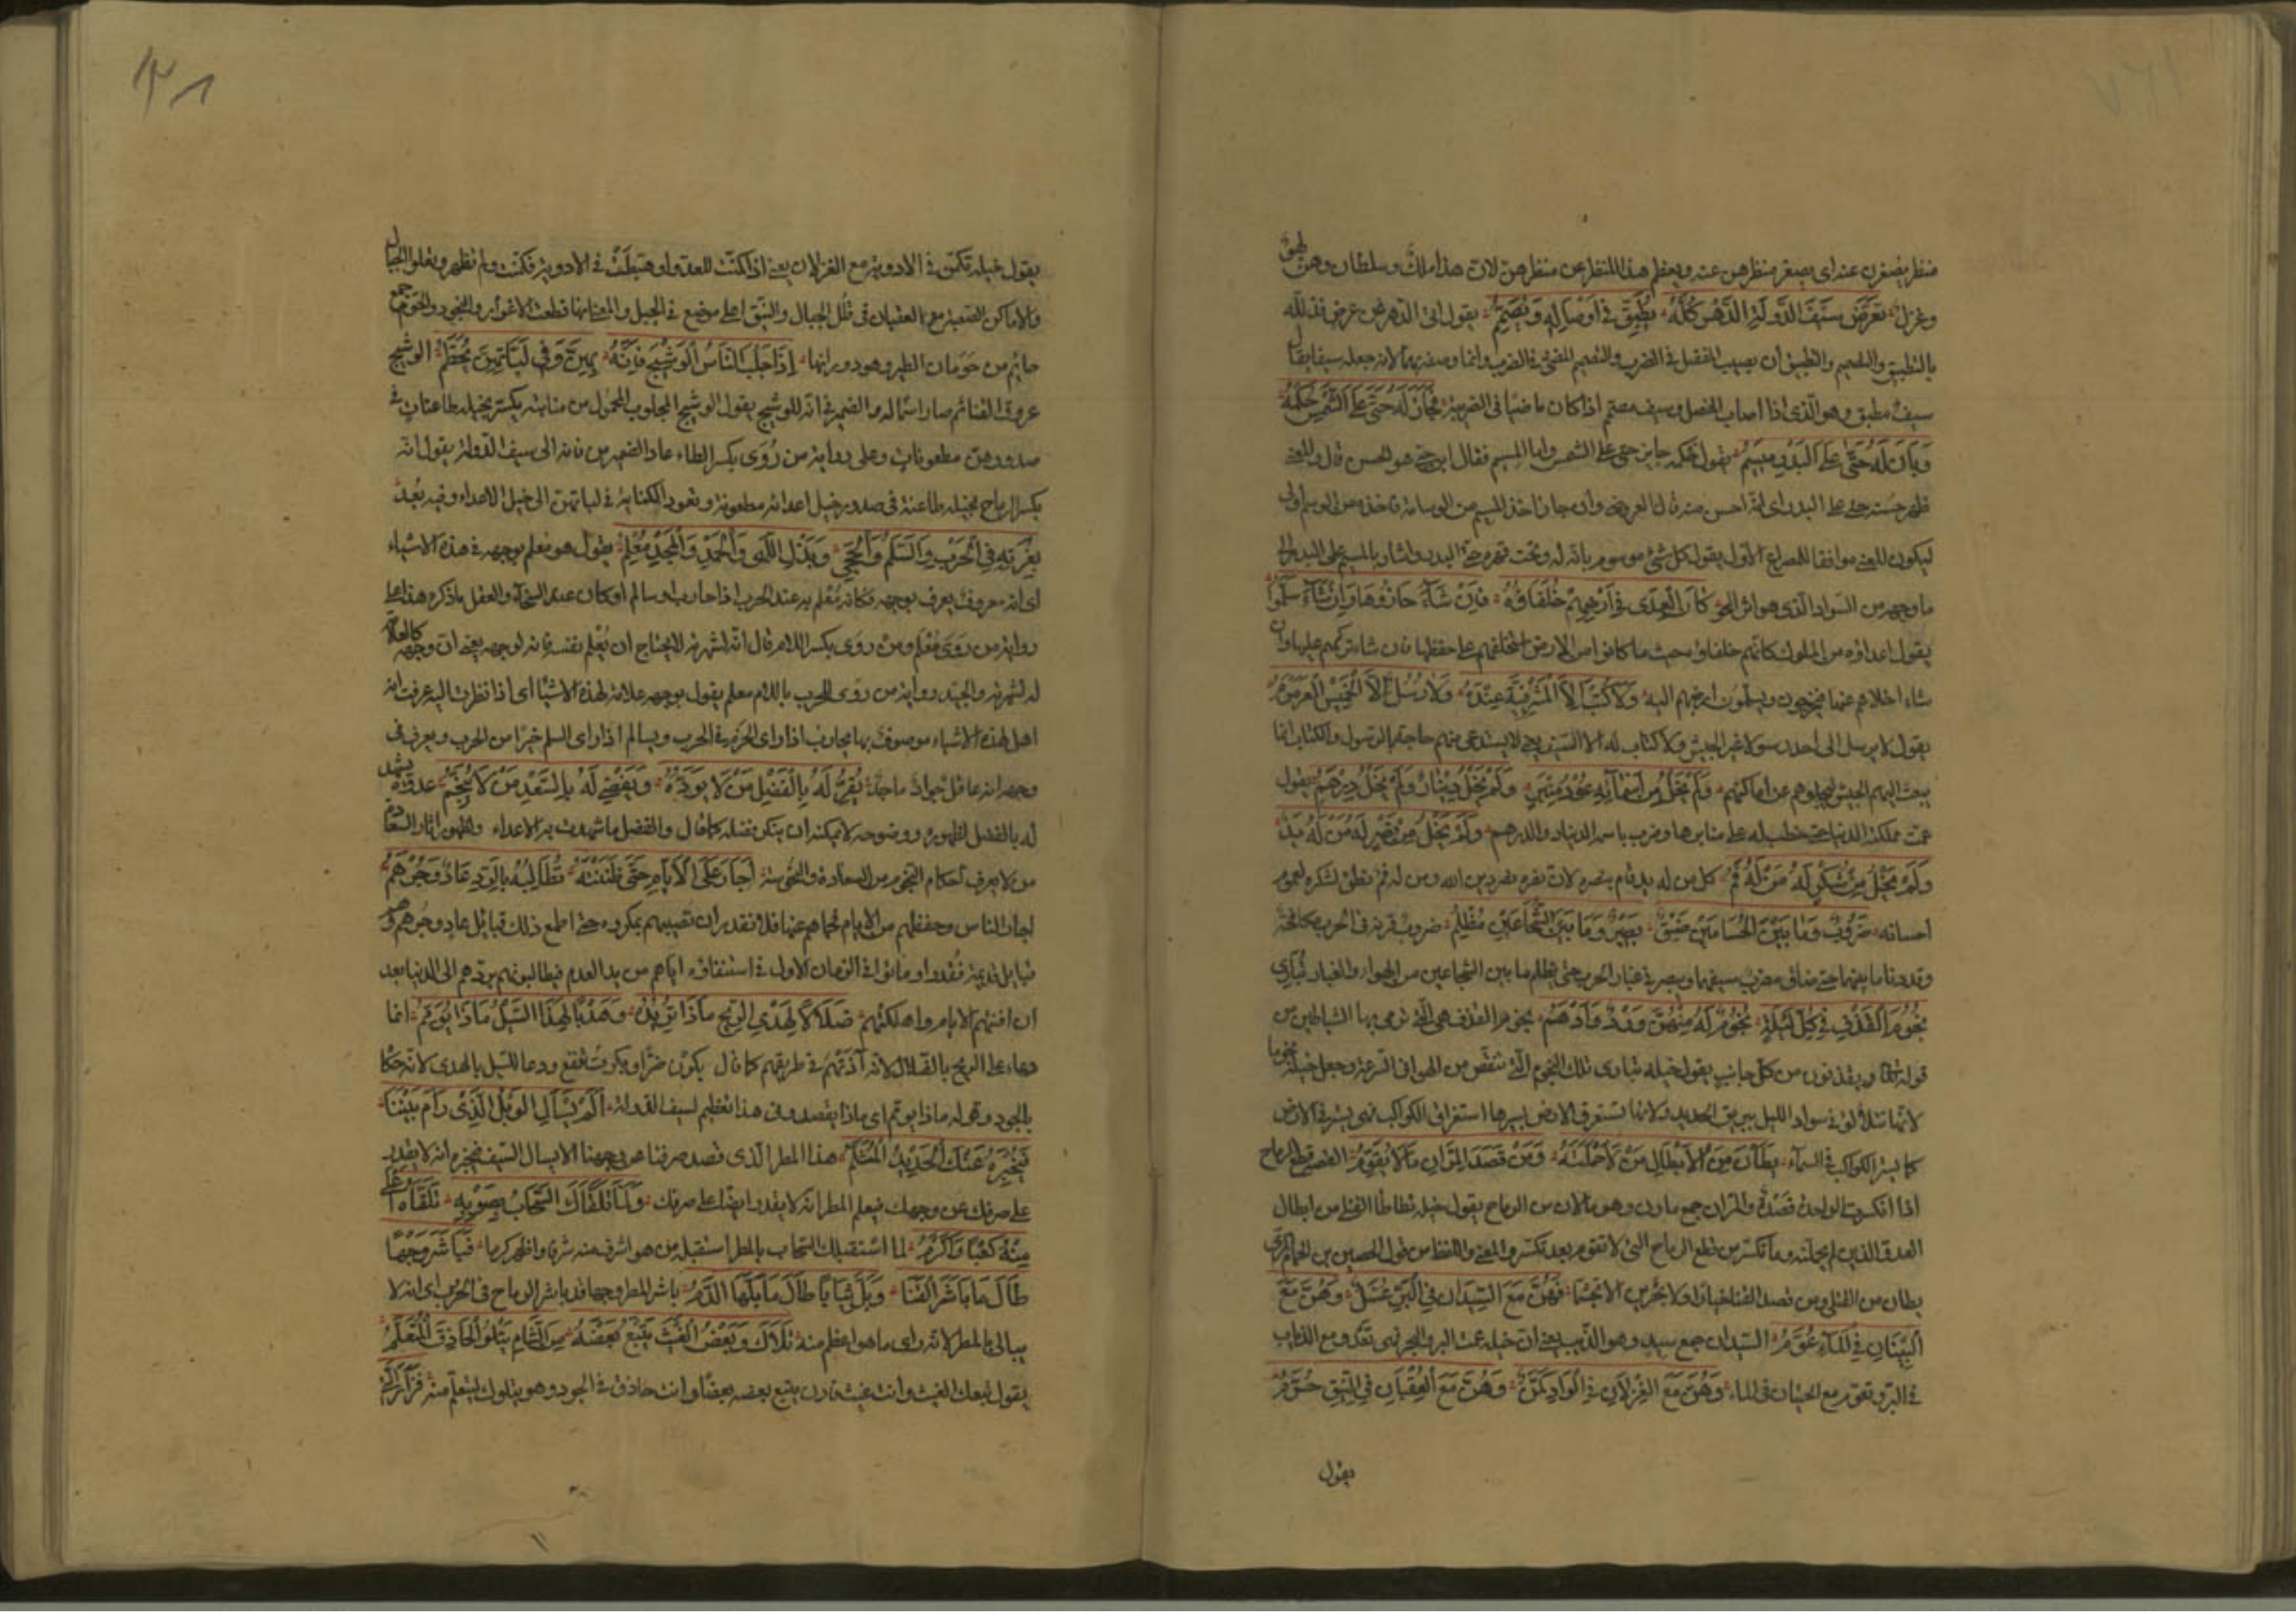 منظر يصغرن عنه اى يصغر منظرهن عنه ويعظم هذا المنظر عن منظرهن لان هذا ملك وسلطان وهن لهو
وغزل تعرض سيف الدولة الدهر كله يطبق فى اوصاله ويصمم يقول اتى الدهر عن عرض فذلله
بالتطبيق والتصميم والتطبيق ان يصيب المفصل فى الضرب والتصميم المضى فى الضرب وانما وصفه بهما لانه جعله سيفا يقال
سيف مطبق وهو الذى اذا اصاب المفصل وسيف مصمم اذا كان ماضيا فى الضريبة فجاز له حتى على الشمس حكمه
وبان له حتى على البدر ميسم يقول حكمه جايز حتى على الشمس واما الميسم فقال ابن جنى هو الحسن قال والمعنى
ظهر حسنه حتى على البدر اى انه احسن منه قال العروضى وان جاز اخذ الميسم من الوسامة فاخذه من الوسم اولى
ليكون المعنى موافقا للمصراع الاول يقول كل شئ موسوم بانه له وتحت قهره حتى البدر واشار بالميسم على البدر الى
ما وجهه من السواد الذى هو اثر المحو كأن العدى فى أرضهم خلفاؤه فإن شآء حازوها وإن شآء سلموا
يقول اعداؤه من الملوك كانهم خلفاؤه بحيث ما كانوا من الارض استخلفهم على حفظها فان شاء تركهم عليها وان
شاء اخلاهم عنها فيخرجون ويسلمون ارضهم اليه ولا كتب الا المشرفية عنده ولا رسل الا الخميس العرمرم
يقول لا يرسل الى احد رسولا غير الجيش ولا كتاب له الا السيف حتى لا يستدعى منهم حاجة بالرسول والكتاب انما
يبعث اليهم الجيش ليجلوهم عن اماكنهم ولم يخل من أسمآئه عود منبر ولم يخل دينار ولم يخل درهم يقول
عمت مملكته الدنيا حتى خطب له على منابرها وضرب باسمه الدينار والدرهم ولم يخل من نصر له من له يد
ولم يخل من شكر له من له فم كل من له يد قام بنصره لان نصره نصر دين الله ومن له فم نطق لشكره لعموم
احسانه ضروب وما بين الحسامين ضيق بصير وما بين الشجاعين مظلم ضروب قرنه فى الحرب مكافحة
وقد دنا ما بينهما حتى ضاق مضرب سيفهما وبصير فى غبار الحرب حتى يظلم ما بين الشجاعين من الهواء والغبار تبارى
نجوم القذف فى كل ليلة نجوم له منهن ورد وأدهم نجوم القذف هى التى ترمى بها الشياطين من
قوله تعالى ويقذفون من كل جانب يقول خيله تبارى تلك النجوم التى تنقض من الهواء فى السرعة وجعل خيله نجوما
لانها تتلألؤ فى سواد الليل ببريق الحديد ولانها تستغرق الارض بسيرها استغراق الكواكب فهى تسير فى الارض
كما تسير الكواكب فى السمآء يطأن من الأبطال من لا حملنه ومن قصد المران ما لا يقوم القصد قطع الرماح
اذا انكسرت الواحدة قصدة والمران جمع مارن وهو ما لان من الرماح يقول خيله تطأ القتلى من ابطال
العدو الذين لم يحملنه وما تكسر من قطع الرماح التى لا تقوم بعد تكسرها والمعنى واللفظ من قول الحصين بن الحمام المرى
يطان من القتلى ومن قصد القنا خبارا ولا يجرين الا تجشما فهن مع السيدان فى البر عسل وهن مع
النينان فى المآء عوم السيدان جمع سيد وهو الذئب يعنى ان خيله عمت البر والبحر فهى تعدو مع الذئاب
فى البر وتعوم مع الحيتان فى الماء وهن مع الغزلان فى الواد كمن وهن مع العقبان فى النيق حوم
يقول
١٢٨
يقول خيله تكمن فى الاودية مع الغزلان يعنى اذا كمنت للعدو او هبطت فى الاودية فكمنت ولم تظهر وتعلو الجبال
والاماكن الصعبة مع العقبان فى قلل الجبال والنيق اعلى موضع فى الجبل والمعنى انها قطعت الاغوار والنجود والحوم جمع
حايم من حومان الطير وهو دورانها إذا جلب الناس الوشيج فإنه بهن وفى لباتهن يحطم الوشيج
عروق القنا ثم صار اسما له والضمير فى انه للوشيج يقول الوشيج المجلوب المحمول من منابته يكسر بخيله طاعنات فى
صدورهن مطعونات وعلى رواية من روى بكسر الطاء عاد الضمير من فانه الى سيف الدولة يقول انه
يكسر الرماح بخيله طاعنة فى صدور خيل اعدائه مطعونة وتعود الكناية فى لباتهن الى خيل الاعداء وفيه بعد
بغرته فى الحرب والسلم والحجى وبذل اللهى والحمد والمجد معلم يقول هو معلم بوجهه فى هذه الاشياء
اى انه معروف يعرف بوجهه فكانه معلم به عند الحرب اذا حارب او سالم او كان عند السخآء والعقل ما ذكره هذا على
رواية من روى معلم ومن روى بكسر اللام قال انه لشهرته لا يحتاج ان يعلم نفسه فانه لوجهه يعنى ان وجهه كالعلامة
له لشهرته والجيد رواية من روى للحرب باللام معلم يقول بوجهه علامة لهذه الاشيا اى اذا نظرت اليه عرفت انه
اهل لهذه الاشياء موصوف بها يحارب اذا راى الحزم فى الحرب ويسالم اذا راى السلم خيرا من الحرب ويعرف فى
وجهه انه عاقل جواد ماجد يقر له بالفضل من لا يوده ويقضى له بالسعد من لا ينجم عدوه يشهد
له بالفضل لظهوره ووضوحه لا يمكنه ان ينكر فضله كما قال والفضل ما شهدت به الاعداء ولظهور اثار السعادة
من لا يعرف احكام النجوم من السعادة والنحوسة أجار على الأيام حتى ظننته تطالبه بالرد عاد وجرهم
اجار الناس وحفظهم من الايام فحماهم عنها فلا تقدر ان تصيبهم بمكروه حتى اطمع ذلك قبائل عاد وجرهم وهم
قبايل قديمة فقدوا وماتوا فى الزمان الاول فى استنقاذه اياهم من يد العدم فيطالبونه بردهم الى الدنيا بعد
ان افنتهم الايام واهلكتهم ضلالا لهذى الريح ماذا تريده وهديا لهذا السيل ماذا يؤمم انما
دعاء على الريح بالضلال لانه آذتهم فى طريقهم كما قال يكون ضرا ويكون نفع ودعا للسيل بالهدى لانه حكاه
بالجود وقوله ماذا يؤمم اى ماذا يقصد وفى هذا تعظيم لسيف الدولة ألم يسأل الوبل الذى رام ثنينا
فيخبره عنك الحديد المثلم هذا المطر الذى قصد صرفنا عن وجهنا الا يسال السيف فيخبره انه لا يقدر
على صرفك عن وجهك فيعلم المطر انه لا يقدر ايضا على صرفك ولما تلقاك السحاب بصوبه تلقاه أعلى
منه كعبا وأكرم لما استقبلك السحاب بالمطر استقبله من هو اشرف منه شرفا واظهر كرما فباشر وجها
طال ما باشر القنا وبل ثيابا طال ما بلها الدم باشر المطر وجها قد باشر الرماح فى الحرب اى انه لا
يبالى بالمطر لانه راى ما هو اعظم منه تلاك وبعض الغيث يتبع بعضه من الشام يتلو الحاذق المتعلم
يقول تبعك الغيث وانت غيث فان يتبع بعضه بعضا وانت حاذق فى الجود وهو يتلوك ليتعلم منك فزار التى